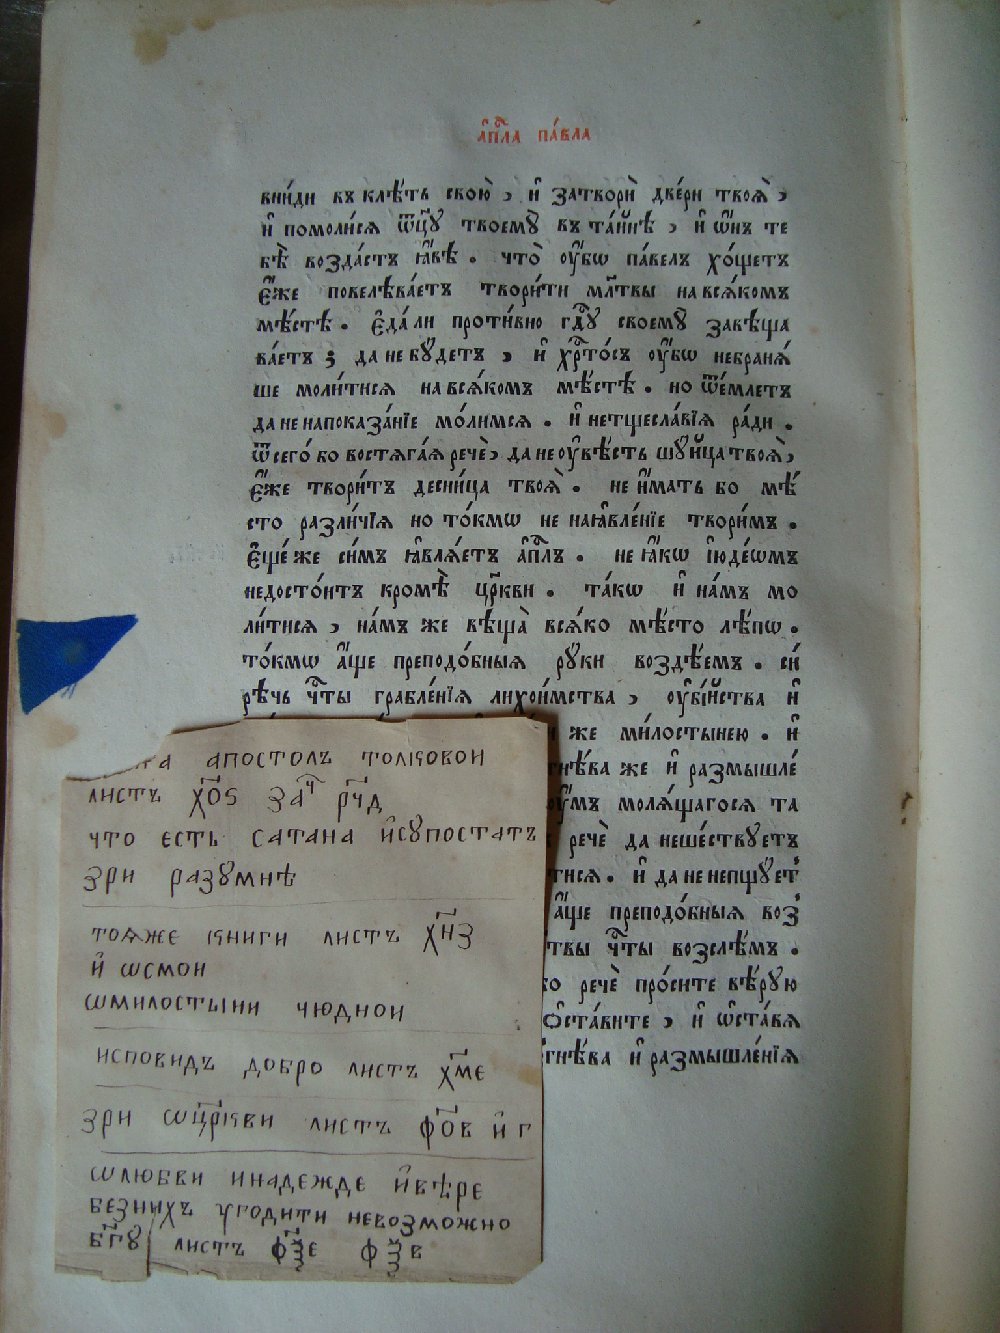 а҆пⷭ҇ла па́вла
вни́ди въ клѣ́ть свою̀, и҆ затворѝ две́ри твоѧ̀,
и҆ помоли́сѧ ѿц҃у твоемꙋ̀ въ та́йнѣ, и҆ ѻ҆́нъ те
бѣ̀ возда́стъ ꙗ҆́вѣ. что̀ ᲂу҆́бѡ па́велъ хо́щетъ
є҆́же повелѣва́етъ твори́ти мл҃твы на всѧ́комъ
мѣ́стѣ. є҆да́ ли проти́вно гдⷭ҇ꙋ своемꙋ̀ завѣща
ва́етъ; да не бꙋ́детъ, и҆ хрⷭ҇то́съ ᲂу҆́бѡ небранѧ́
ше моли́тисѧ на всѧ́комъ мѣ́стѣ. но ѿе́млетъ
да не напоказа́нїе мо́лимсѧ. и҆ нетщесла́вїѧ ра́ди.
ѿ сего́ бо востѧга́ѧ рече̏, да не ᲂу҆вѣ́сть шꙋ́йца твоѧ̀,
є҆́же твори́тъ десни́ца твоѧ̀. не и҆́мать бо мѣ́
сто разли́чїѧ но то́кмѡ не наꙗ҆вле́нїе твори́мъ.
є҆ще́ же си́мъ ꙗ҆влѧ́етъ а҆пⷭ҇лъ. не ꙗ҆́кѡ і҆юде́ѡмъ
недосто́итъ кромѣ̀ цр҃кви. та́кѡ и҆ на́мъ мо
ли́тисѧ, на́мъ же вѣща̀ всѧ́ко мѣ́сто лѣ́пѡ.
то́кмѡ а҆́ще преподо́бныѧ рꙋ́ки воздѣ́емъ. си́
рѣчь чⷭ҇ты грабле́нїѧ лихои́мства, ᲂу҆бі́йства и҆
же ми́лостынею. и҆
гнѣ́ва же и҆ размышле́
молѧ́щагосѧ та
рече̏ да неше́ствꙋетъ
тисѧ. и҆ да не непщꙋ́етъ
а҆́ще преподо́бныѧ воз
твы чⷭ҇ты возслѣ́мъ.
рече̏ про́сите вѣ́рꙋю
ѻ҆ста́вите, и҆ ѡ҆ста́вѧ
гнѣ́ва и҆ размышле́нїѧ
апостолъ толковои
листъ х҃оѕ заⷱ҇ р҃чд
что есть сатана и҆сꙋпостатъ
зри разꙋмнѣ
тоѧже книги листъ х҃нз
и҆ ѡсмои
ѡмилостыни чюднои
исповидъ добро листъ х҃ме
зри ѡцр҃кви листъ ф҃ов и҆ г
ѡлюбви инадежде и҆вѣре
безнихъ угодити невозможно
б҃гꙋ листъ ф҃ѯе ф҃ѯв